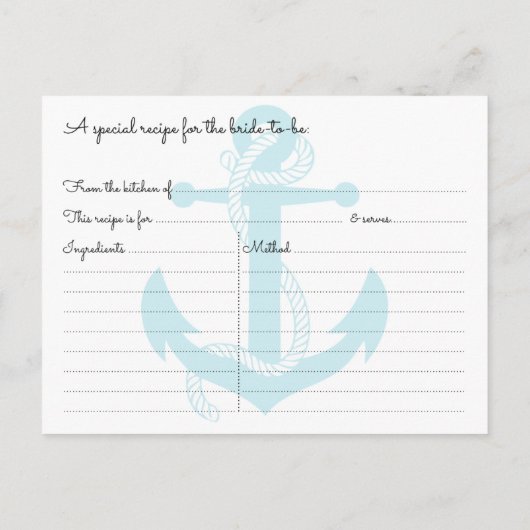 A special recipe for the bride-to-be:
From the kitchen of
This recipe is for & serves
Ingredients Method